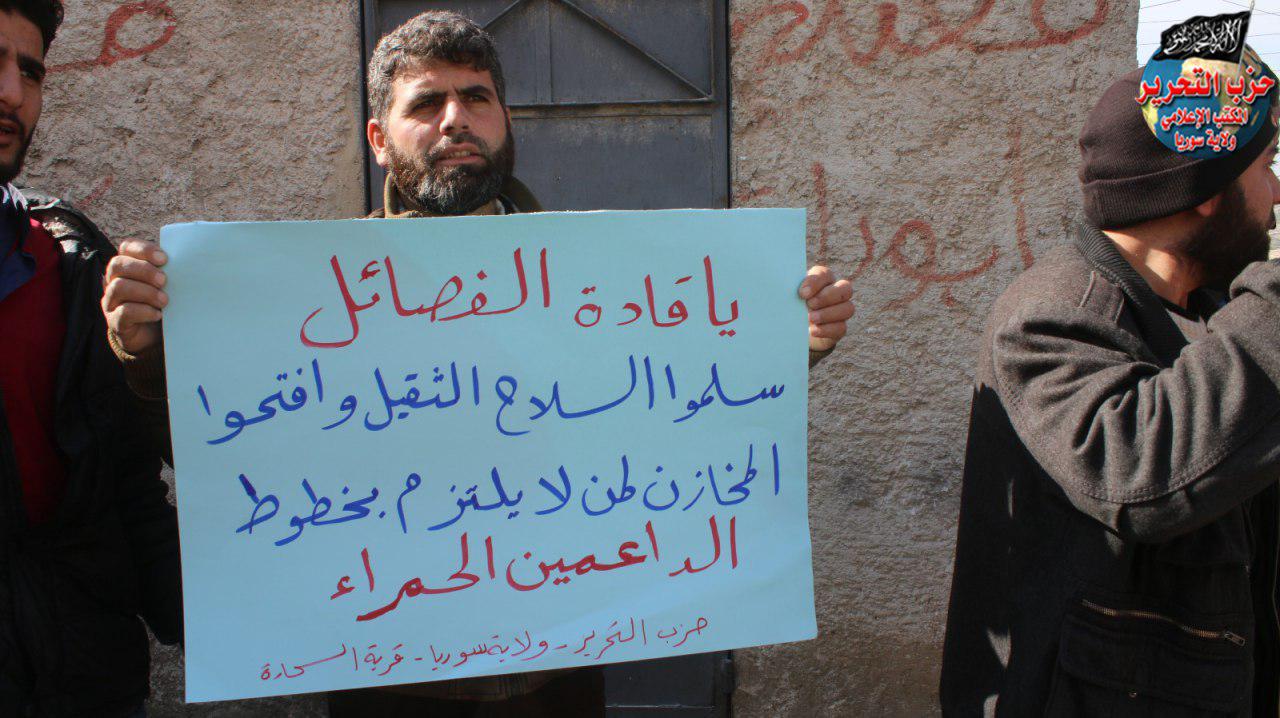 حزب التحرير
المكتب الإعلامي
ولاية سوريا
يا قادة الفصائل
سلموا السلاح الثقيل وافتحوا
المخازن لمن لا يلتزم بخطوط
الداعمين الحمراء
حزب التحرير - ولاية سوريا - قرية السحارة